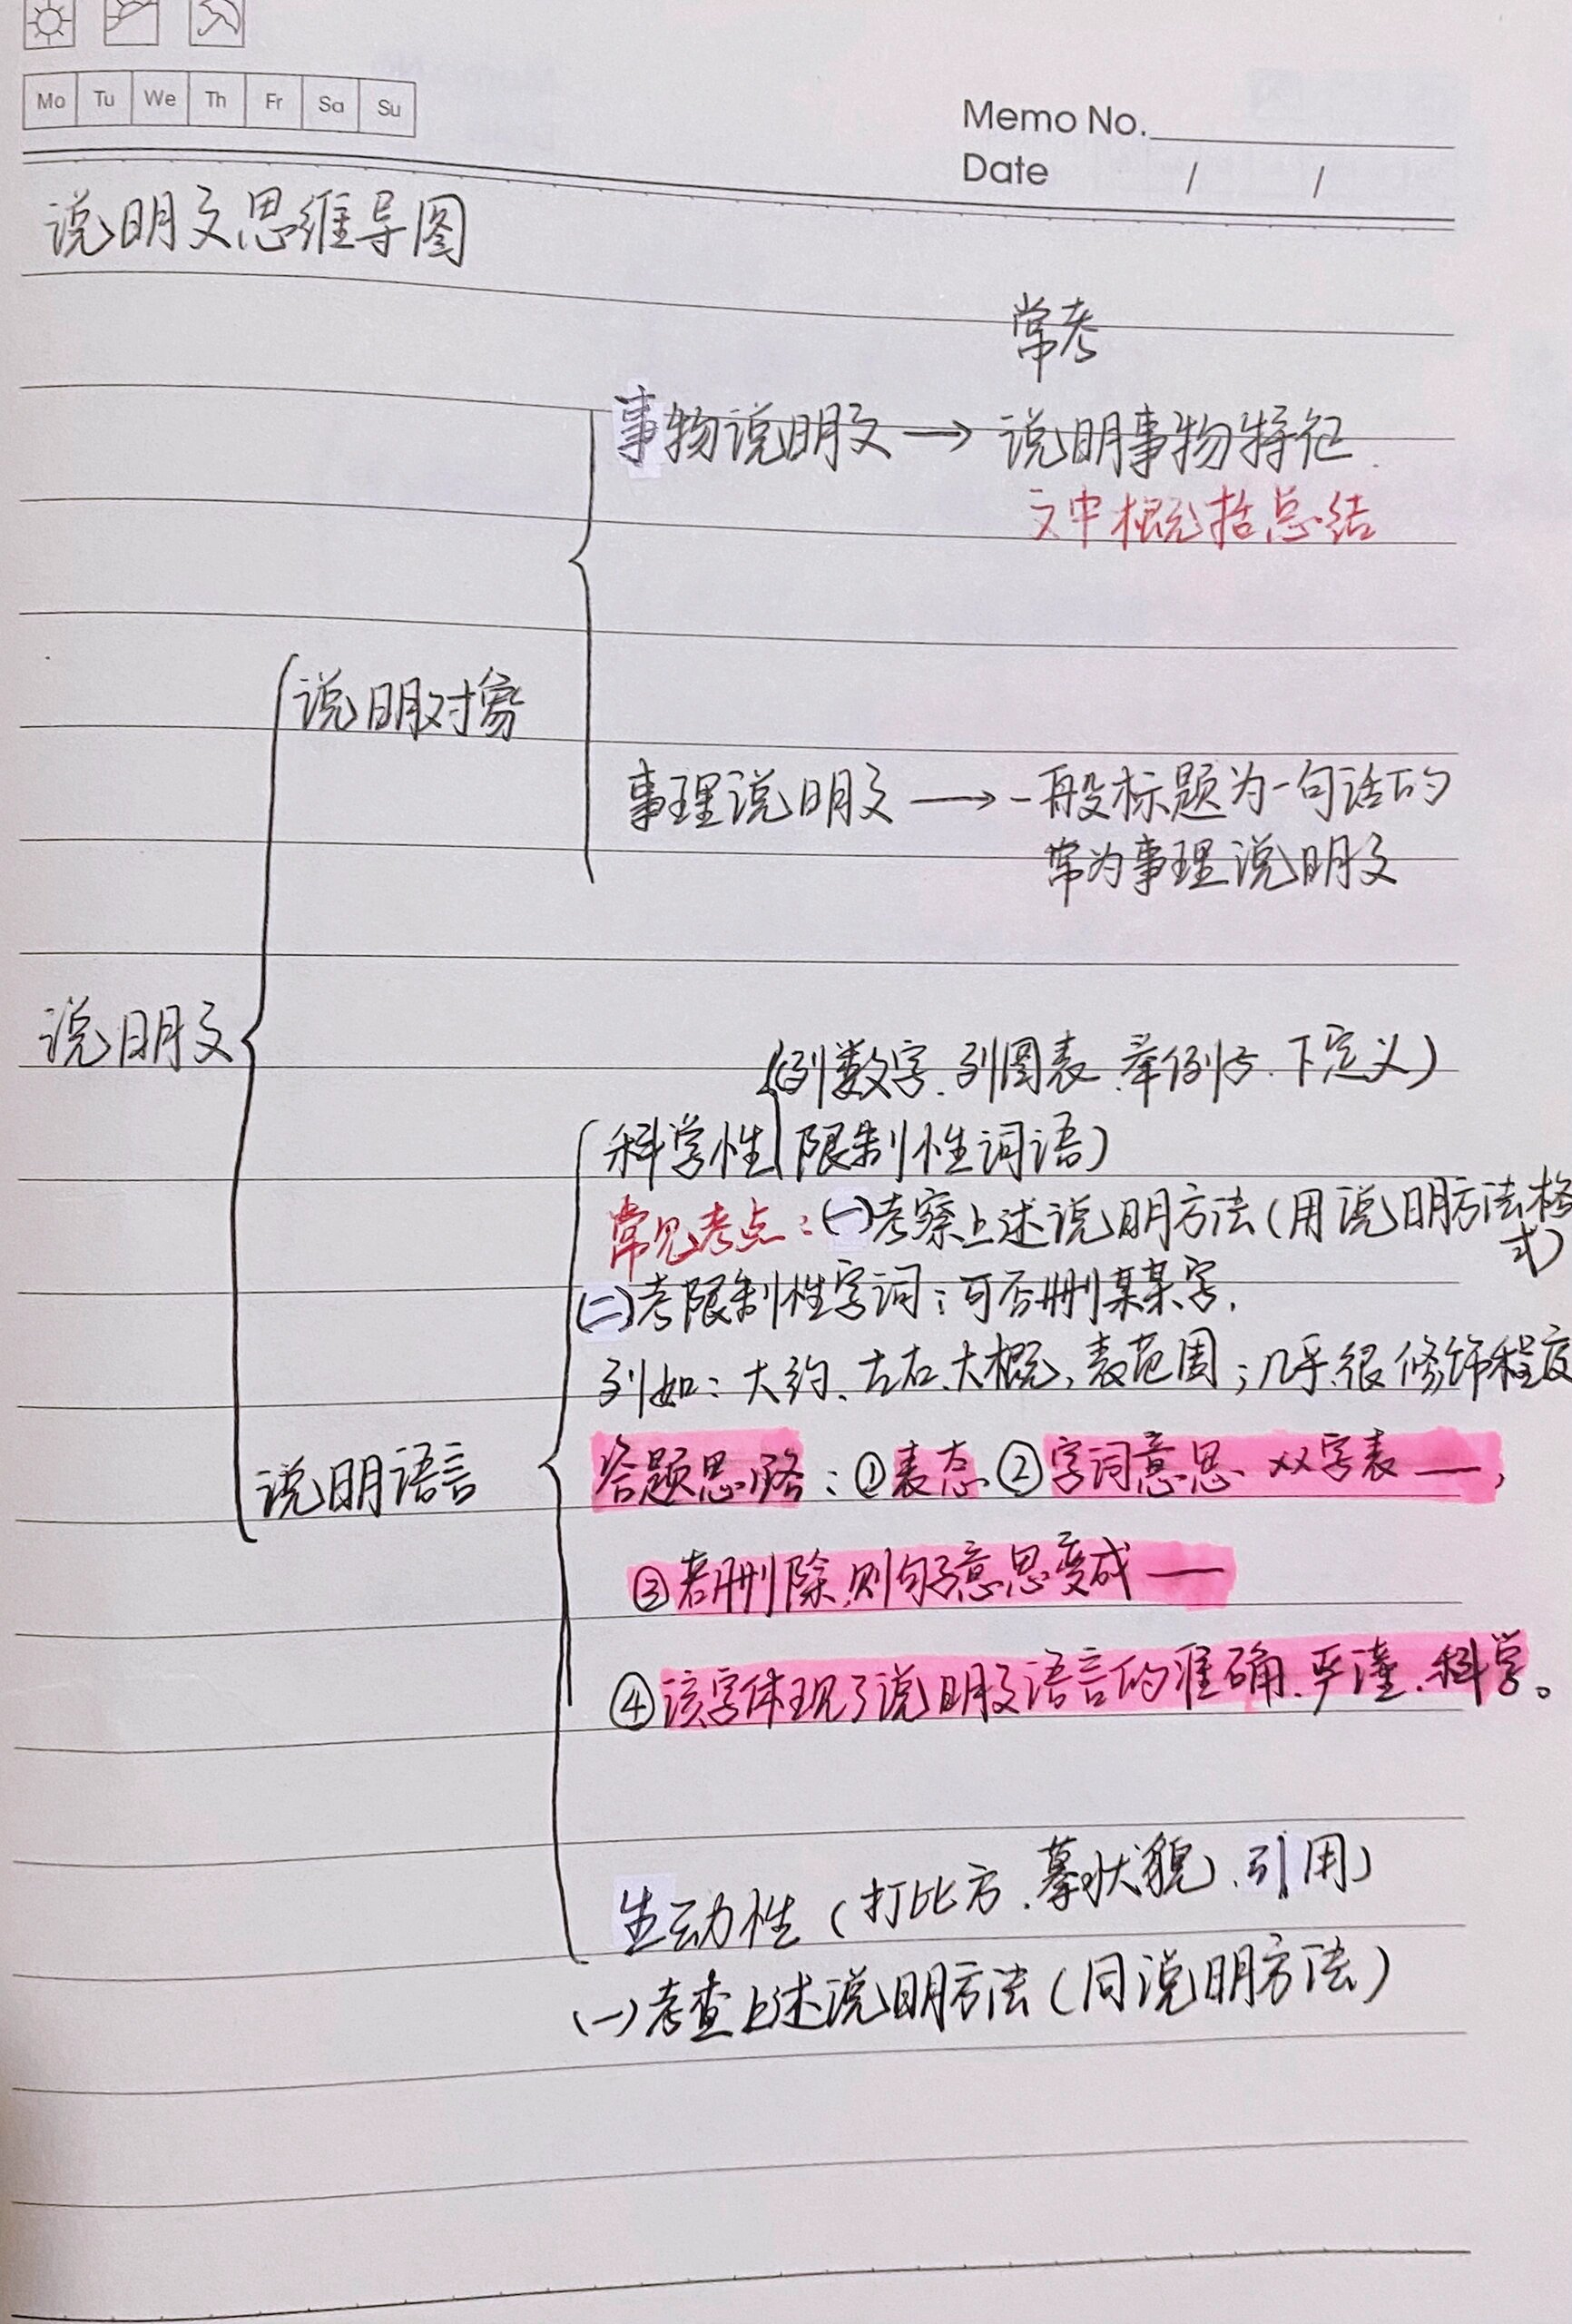 Mo Tu We Th Fr Sa Su
Memo No.
Date / /
说明文思维导图
常考
事物说明文→说明事物特征
文中概括总结
说明对象
事理说明文→一般标题为一句话的
常为事理说明文
说明文
(列数字、列图表、举例子、下定义)
科学性 限制性词语)
常见考点:(一)考察上述说明方法(用说明方法格
式)
(二)考限制性字词:可否删某某字,
列如:大约、左右、大概,表范围;几乎、很修饰程度
答题思路:①表态②字词意思 xx字表——,
说明语言
③若删除,则句子意思变成——
④该字体现了说明文语言的准确、严谨、科学。
生动性(打比方、摹状貌、引用)
(一)考查上述说明方法(同说明方法)